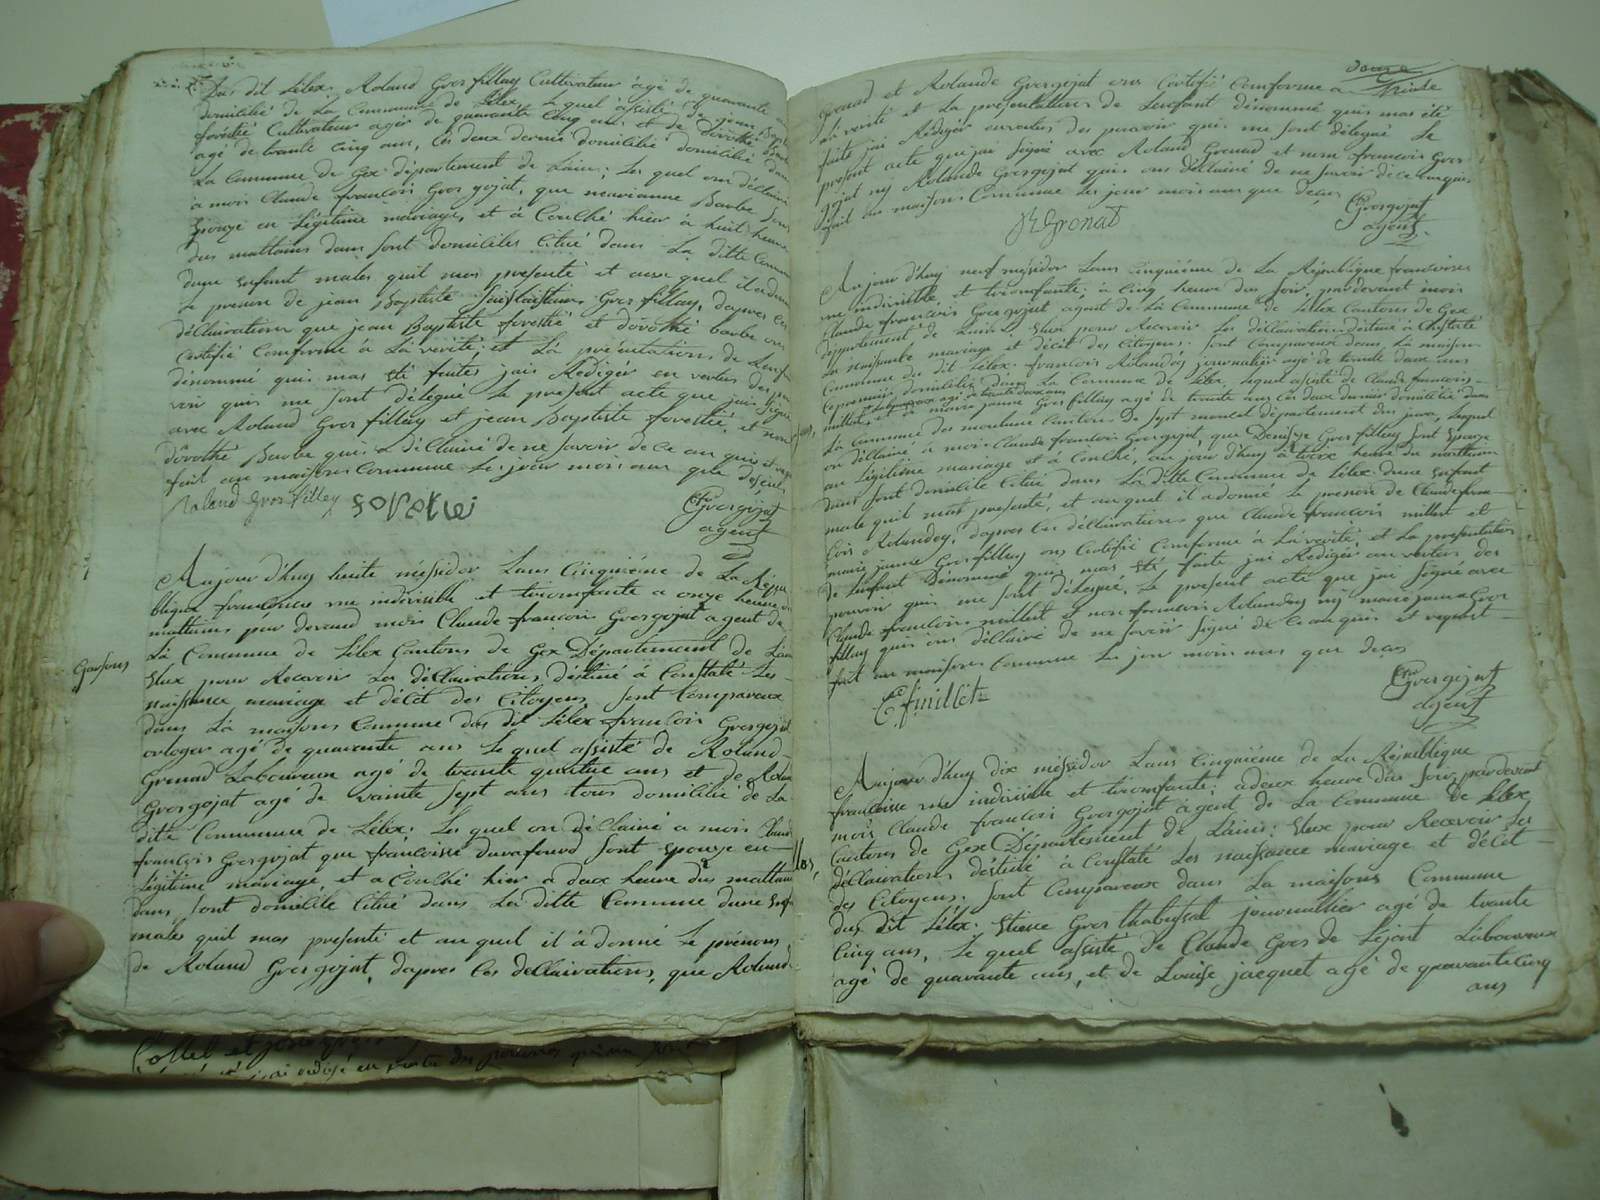 du dit Lélex, Roland Grosfilley Cultivateur agé de quarante
domicilié de la Commune de Lélex, Lequel assisté de jean
forestié Cultivateur agée de quarante Cinq ans et de dorothé
agé de trante Cinq ans, Les deux dernié domicilié domicilié dans
La Commune de Gex département de Lain; Les quel on déClairé
à mois Claude françois Grosgojat, que marianne Barbe Sont
Epouze en Légitime mariage, et à Couché hier à huit heure
du mattains dans sont domiciles Citué dans La ditte Commune
dune enfant males quil mas presenté et auquel il a donné
Le prenon de jean Baptiste Grosfilley, dapres Les
déClairations que jean Baptiste forestié et dorothé barbe ons
Certifié Comforme à La verité; et La présentations de Lenfant
dénommé qui mas été faites, jais Rediger en vertus des pou
voir quis me sont délégué Le present acte que jais Signé
avec Roland Grosfilley et jean Baptiste forestié, et non
dorothé Barbe quis a déClairé de ne Savoir de Ce an quis et requis
fait au maisons Commune Les jour mois ans que desus
Roland Grosfilley forestie
Cfs Grosgojat
agent
Aujour d'huy huite méssidor Lans Cinquiéme de La Répu
blique francoise une indivisible et triomfante a onze heure
mattains par devand mois Claude francois Grosgojat agent de
La Commune de Lélex Cantons de Gex Département de Lain
Elux pour Recevoir Les déClairations destiné à Constaté Les
Garsons
naissance mariage et décét des Citoyens, Sont Comparaux
dans La maisons Commune du dit Lélex francois Grosgojat
orloger agé de quarante ans Lequel assisté de Roland
Grenad Laboureux agé de trante quatre ans et de Rolande
Grosgojat agé de vainte Sept ans tous domicilié de La
ditte Commune de Lélex; Les quel on déClairé a mois Claude
françois Grosgojat que francoise Sont Epouze en
Légitime mariage, et a Couché hier a deux heure du mattains
dans sont domicile Citué dans La ditte Commune dune enfant
males quil mas presenté et au quel il à donné Le prénoms
de Roland Grosgojat, dapres Les déClairations, que Roland
douze
trinte
Grenad et Rolande Grosgojat ons Certifié Comforme a
La verité et La présentations de Lenfant dénommé quis mas été
faite jai Rédigér envertus des pouvoir quis me Sont délegué Le
present acte que jai Signé avec Roland Grenad et nom francois Gros
gojat ny Rolande Grosgojat quis ons déClairé de ne Savoir de Ce enquis
fait au maisons Commune Les jour mois ans que desus
Rd Gronat
Cfs Grosgojat
agent
Aujour d'huy neuf méssidor Lans Cinquiéme de La République francoises
une indivisible et triomfante; à Cinq heure du Soir, par devant mois
Claude francois Grosgojat agent de La Commune de Lélex Cantons de Gex
département de Lain Elux pour Recevoir Les déClairations destiné à Constaté
La naissance mariage et décét des Citoyens. Sont Comparaux dans La maisons
Commune du dit Lélex, françois Rolandez journaliér agé de trante deux ans
domicilié dans La Commune de Lélex, Lequel assisté de Claude francois
millet, agé de trante deux ans et de marie jeanne Grosfilley agé de trante ans Les deux dernier domicilié dans
La Commune des moulune Cantons De Sept moncel département du jura, Lequel
on déClairé à mois Claude francois Grosgojat, que Denise Grosfilley Sont Epouze
au Légitime mariage et à Couché, au jour d'huy à heure du mattains
dans Sont domicile Citué dans La ditte Commune de Lélex dune enfant
male quil mas presenté, et auquel il a donné Le prenon de Claude fran
Cois Rolandez, dapres Les déClairations que Claude francois millet et
marie jeanne Grosfilley ons Certifié Comforme à La verité, et La presentation
de Lenfant Dénommé quis mas été faite jai Rédigée en vertus des
pouvoir quis me Sont délégué, Le present acte que jai Signé avec
Claude françois millet et non francois Rolandez ny marie jeanne Gros
filley quis ons déClairé de ne Savoir Signé de Ce an quis et request
fait au maisons Commune Les jour mois ans que desus
Cf millet
Cfs Grosgojat
agent
Aujour d'huy dix méssidor Lans Cinquiéme de La République
francoise une indivisible et triomfante; à deux heure du Soir, par devant
mois Claude francois Grosgojat agent de La Commune de Lélex
Cantons de Gex Département de Lains; Elux pour Recevoir Les
déClairations déstiné à Constaté Les naissance mariage et décét
des Citoyens; Sont Comparaux dans La maisons Commune
du dit Lélex; Etiene Gros journallier agé de trante
Cinq ans, Le quel assisté de Claude Gros de Léjont Laboureux
agé de quarante ans, et de Louise jacquet agé de quarante Cinq
ans